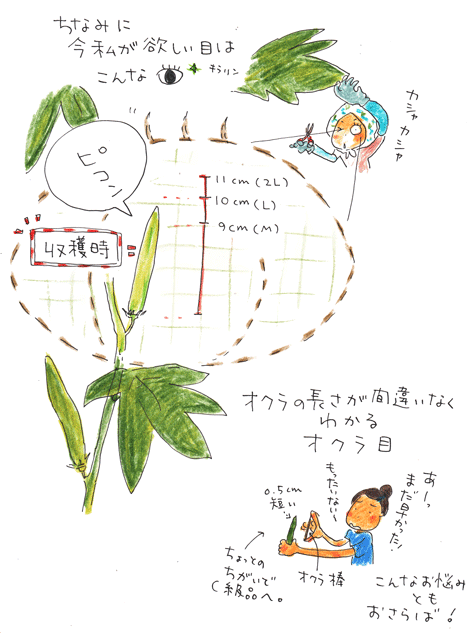 ちなみに
今私が欲しい目は
こんな
キラリン
カシャカシャ
ピコン
11cm(2L)
10cm(L)
9cm(M)
収穫時
オクラの長さが間違いなく
わかる
オクラ目
あーっ
まだ早かった!
もったいない〜
0.5cm
短い
オクラ棒
ちょっとの
ちがいで
C級品へ。
こんなお悩み
とも
おさらば!